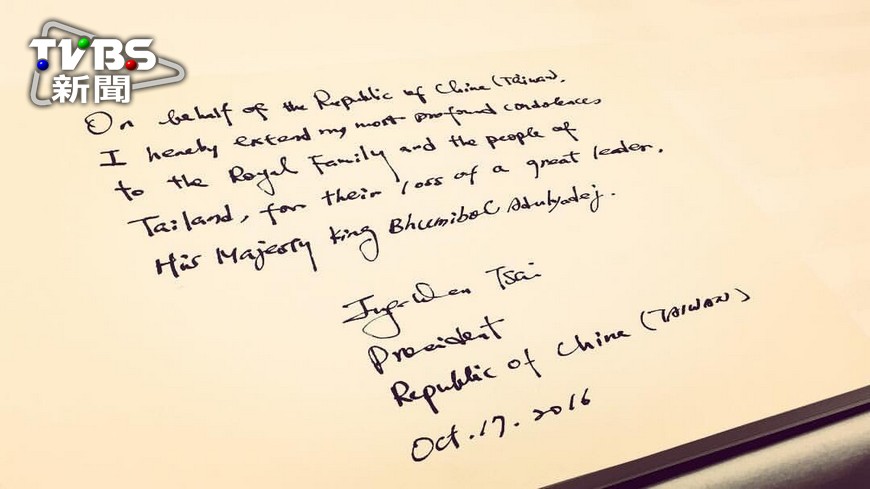 TVBS
新聞
On behalf of the Republic of China (Taiwan),
I hereby extend my most profound condolences
to the Royal Family and the people of
Tailand, for their loss of a great leader,
His Majesty King Bhumibol Adulyadej.
Ing-Wen Tsai
President
Republic of China (TAIWAN)
Oct. 17. 2016